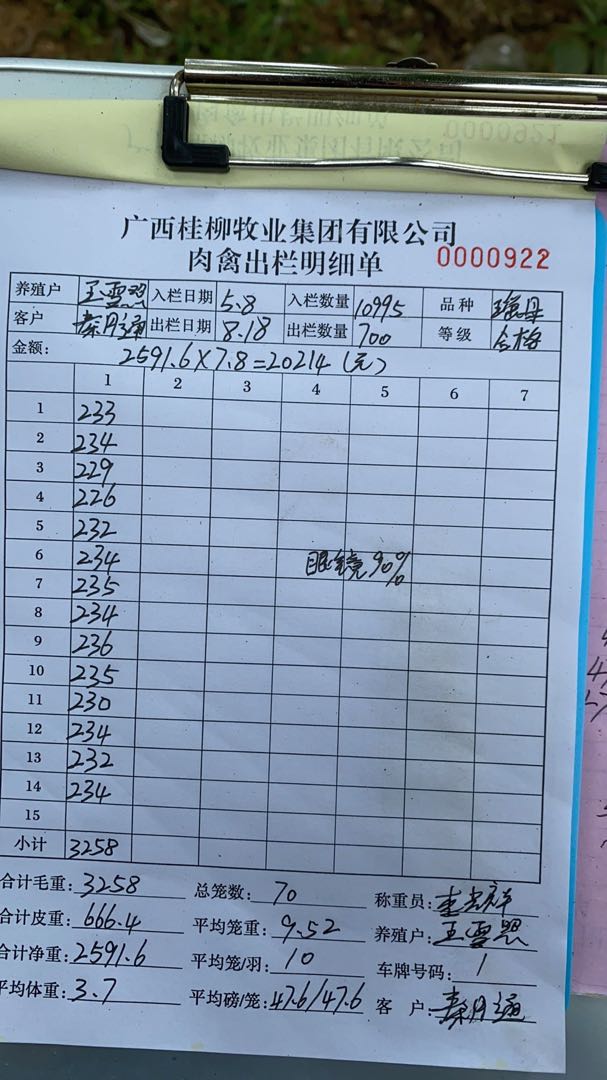 0000921
广西桂柳牧业集团有限公司
肉禽出栏明细单 0000922
养殖户 王雪恩 入栏日期 5.8 入栏数量 10995 品种 瑶母
客户 秦月通 出栏日期 8.18 出栏数量 700 等级 合格
金额: 2591.6×7.8=20214(元)
1 2 3 4 5 6 7
1 233
2 234
3 229
4 226
5 232
6 234 眼镜90%
7 235
8 234
9 236
10 235
11 230
12 234
13 232
14 234
15
小计 3258
合计毛重: 3258 总笼数: 70 称重员:
合计皮重: 666.4 平均笼重: 9.52 养殖户: 王雪恩
合计净重: 2591.6 平均笼/羽: 10 车牌号码: 1
平均体重: 3.7 平均磅/笼: 47.6/47.6 客 户: 秦月通